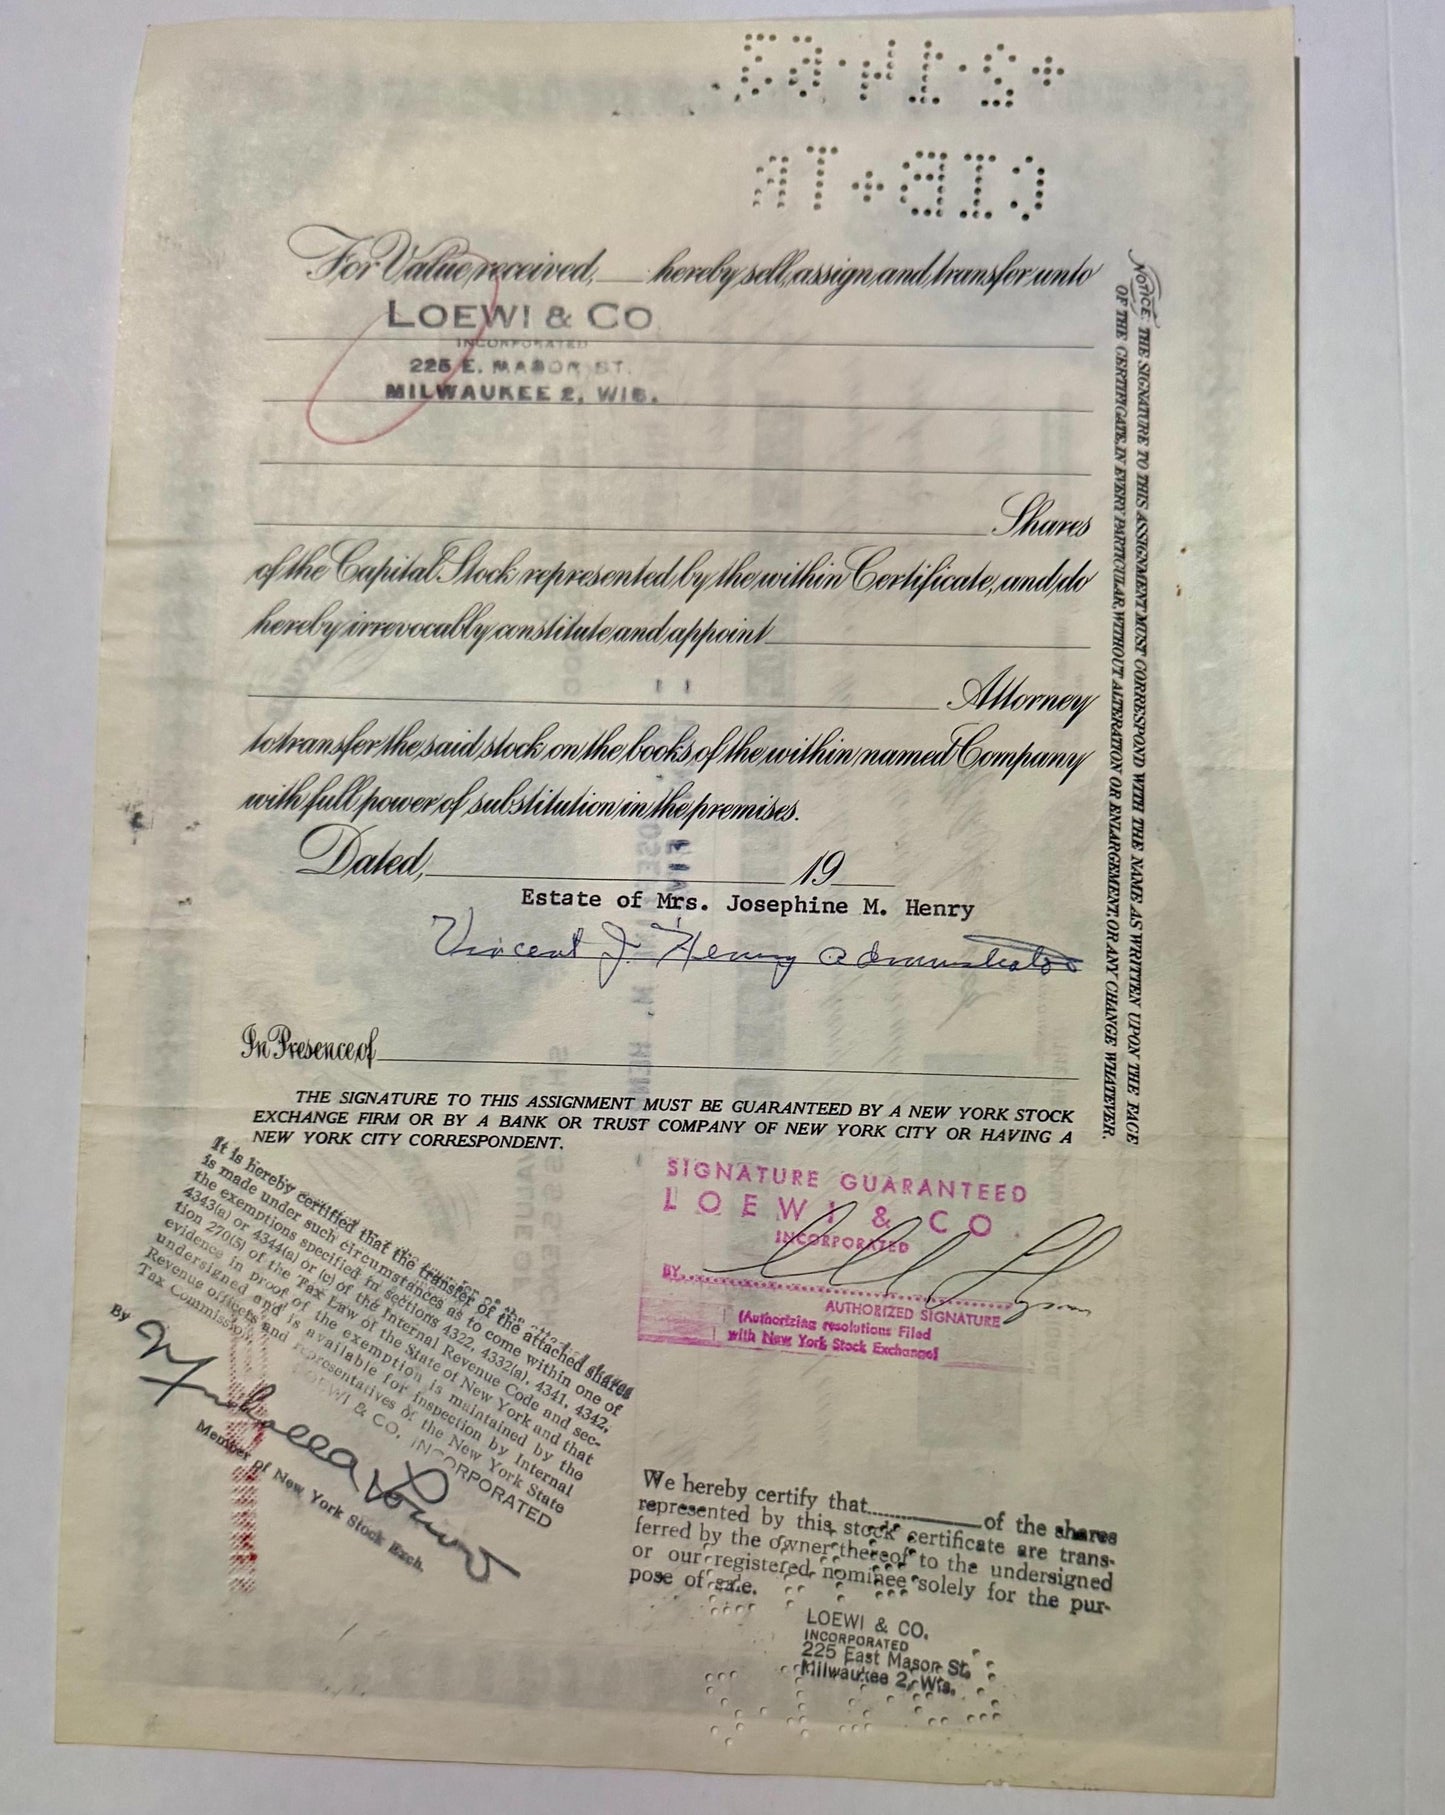 For Value received, hereby sell, assign and transfer unto
LOEWI & CO
INCORPORATED
225 E. MASON ST.
MILWAUKEE 2, WIS.
Shares
of the Capital Stock represented by the within Certificate, and do
hereby irrevocably constitute and appoint
Attorney
to transfer the said stock on the books of the within named Company
with full power of substitution in the premises.
Dated, 19
Estate of Mrs. Josephine M. Henry
Vincent J. Henry administrator
In Presence of
THE SIGNATURE TO THIS ASSIGNMENT MUST BE GUARANTEED BY A NEW YORK STOCK
EXCHANGE FIRM OR BY A BANK OR TRUST COMPANY OF NEW YORK CITY OR HAVING A
NEW YORK CITY CORRESPONDENT.
NOTICE: THE SIGNATURE TO THIS ASSIGNMENT MUST CORRESPOND WITH THE NAME AS WRITTEN UPON THE FACE
OF THE CERTIFICATE, IN EVERY PARTICULAR, WITHOUT ALTERATION OR ENLARGEMENT, OR ANY CHANGE WHATEVER.
It is hereby certified that the transfer of the attached shares
is made under such circumstances as to come within one of
the exemptions specified in sections 4322, 4332(a), 4341, 4342,
4343(a) or 4344(a) or (c) of the Internal Revenue Code and sec-
tion 270(5) of the Tax Law of the State of New York and that
evidence in proof of the exemption is maintained by the
undersigned and is available for inspection by Internal
Revenue officers and representatives of the New York State
Tax Commission.
LOEWI & CO. INCORPORATED
By
Member of New York Stock Exch.
SIGNATURE GUARANTEED
LOEWI & CO
INCORPORATED
BY
AUTHORIZED SIGNATURE
(Authorizing resolutions Filed
with New York Stock Exchange)
We hereby certify that of the shares
represented by this stock certificate are trans-
ferred by the owner thereof to the undersigned
or our registered nominee solely for the pur-
pose of sale.
LOEWI & CO.
INCORPORATED
225 East Mason St.
Milwaukee 2, Wis.